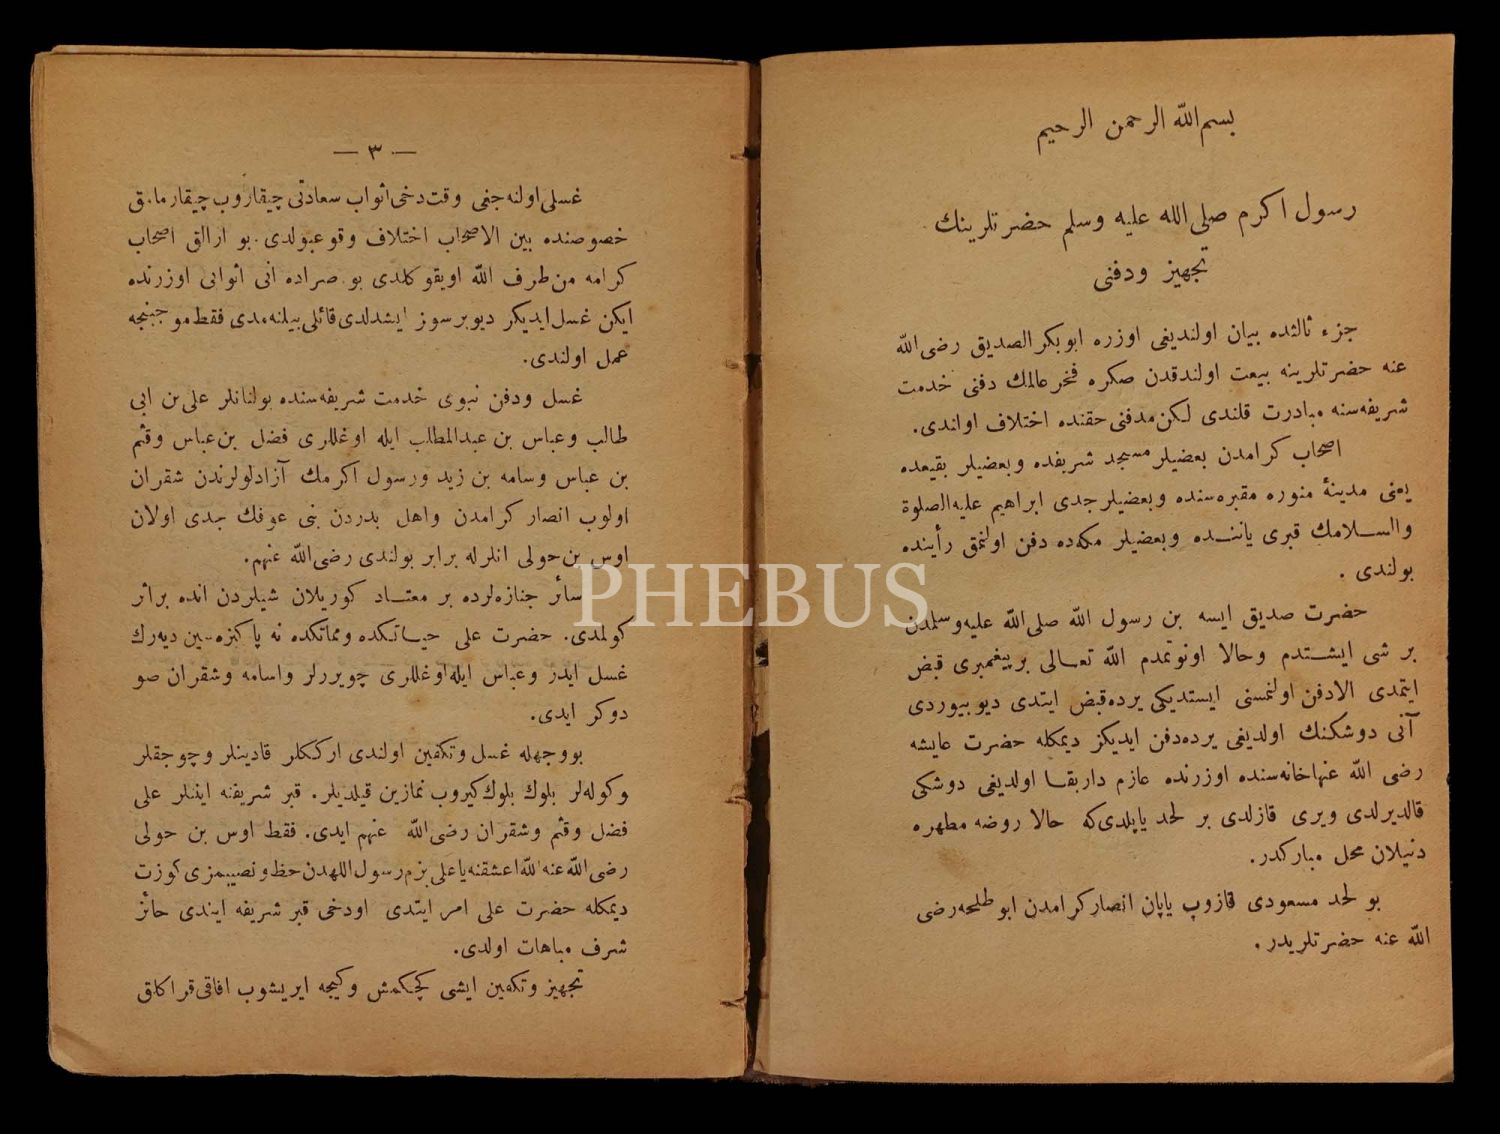 بسم الله الرحمن الرحيم
رسول اكرم صلى الله عليه وسلم حضرتلرينك
تجهيز ودفنى
جزء ثالثده بيان اولنديغى اوزره ابوبكر الصديق رضى الله
عنه حضرتلرينه بيعت اولندقدن صكره فخر عالمك دفنى خدمت
شريفه‌سنه مبادرت قلندى لكن مدفنى حقنده اختلاف اولندى.
اصحاب كرامدن بعضيلر مسجد شريفده وبعضيلر بقيعده
يعنى مدينهٔ منوره مقبره‌سنده وبعضيلر جدى ابراهيم عليه الصلوة
والسلامك قبرى ياننده وبعضيلر مكه‌ده دفن اولنمق رأينده
بولندى .
حضرت صديق ايسه بن رسول الله صلى الله عليه وسلمدن
بر شى ايشتدم وحالا اونوتمدم الله تعالى بر پيغمبرى قبض
ايتمدى الا دفن اولنمسنى ايستديكى يرده قبض ايتدى ديو بيوردى
آنى دوشكنك اولديغى يرده دفن ايديكز ديمكله حضرت عايشه
رضى الله عنها خانه‌سنده اوزرنده عازم دار بقا اولديغى دوشكى
قالديرلدى ويرى قازلدى بر لحد ياپلدى كه حالا روضه مطهره
دنيلان محل مباركدر.
بو لحد مسعودى قازوپ ياپان انصار كرامدن ابو طلحه رضى
الله عنه حضرتلريدر .
— ٣ —
غسلى اولنه جغى وقت دخى اثواب سعادتى چيقاروب چيقارمامق
خصوصنده بين الاصحاب اختلاف وقوعبولدى. بو ارالق اصحاب
كرامه من طرف الله اويقو كلدى بو صراده انى اثوابى اوزرنده
ايكن غسل ايديكز ديو بر سوز ايشدلدى قائلى بيلنه‌مدى فقط موجبنجه
عمل اولندى.
غسل ودفن نبوى خدمت شريفه‌سنده بولنانلر على بن ابى
طالب وعباس بن عبدالمطلب ايله اوغللرى فضل بن عباس وقثم
بن عباس وسامه بن زيد ورسول اكرمك آزادلولرندن شقران
اولوب انصار كرامدن واهل بدردن بنى عوفك جدى اولان
اوس بن حولى انلرله برابر بولندى رضى الله عنهم.
سائر جنازه‌لرده بر معتاد كوريلان شيلردن انده بر اثر
كولمدى. حضرت على حياتكده ومماتكده نه پاكيزه‌سين ديه‌رك
غسل ايدر وعباس ايله اوغللرى چويررلر واسامه وشقران صو
دوكر ايدى.
بو وجهله غسل وتكفين اولندى ارككلر قادينلر وچوجقلر
وكوله‌لر بلوك بلوك كيروب نمازين قيلديلر. قبر شريفنه اينلر على
فضل وقثم وشقران رضى الله عنهم ايدى. فقط اوس بن حولى
رضى الله عنه الله اعشقنه ياعلى بزم رسول اللهدن حظ ونصيبمزى كوزت
ديمكله حضرت على امر ايتدى اودخى قبر شريفه ايندى حائز
شرف مباهات اولدى.
تجهيز وتكفين ايشى كچكمش وكيجه ايريشوب افاقى قراكلق
PHEBUS